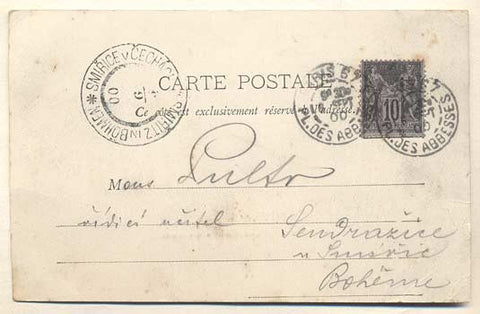 SMIŘICE V ČECHÁCH
SMIŘITZ IN BÖHMEN
00
CARTE POSTALE
Ce côté est exclusivement réservé à l'adresse
PARIS 67
PL. DES ABBESSES
10
PL. DES ABBESSES
Mons Pulto
řídící učitel Sendražice
u Smiřic
Bohême